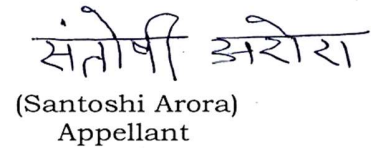 संतोषी अरोरा
(Santoshi Arora)
Appellant